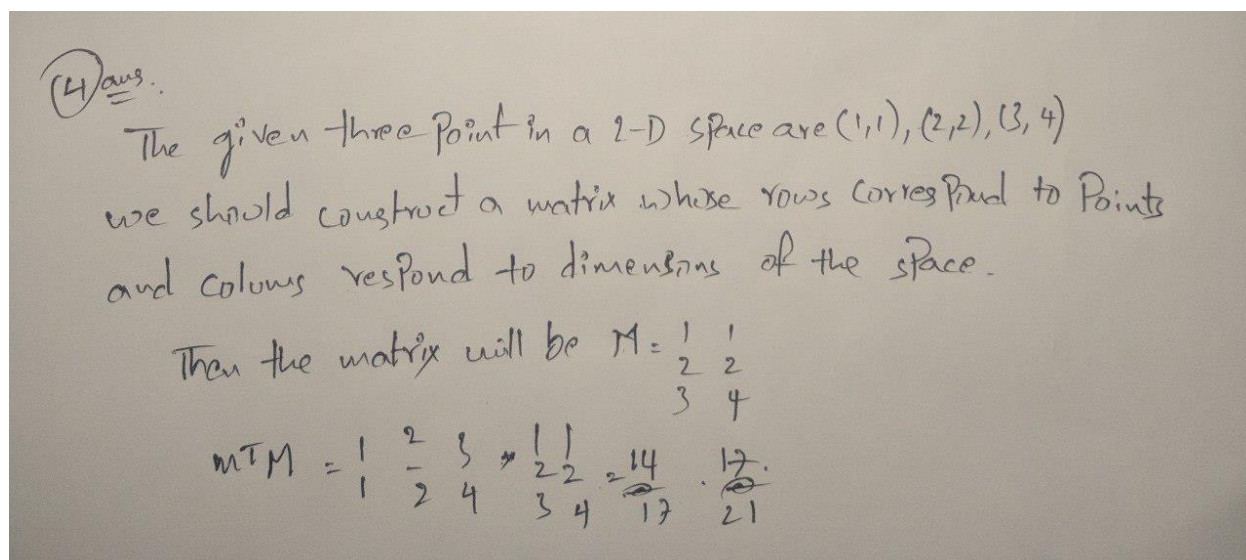 (4) ans.
The given three Point in a 2-D space are (1,1), (2,2), (3, 4)
we should construct a matrix whose rows correspond to Points
and colums respond to dimensions of the space.
Then the matrix will be M = 1 1
2 2
3 4
MTM = 1 2 3 * 1 1 = 14 . 17.
1 2 4 2 2 17 21
3 4